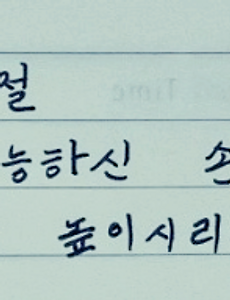 절
능하신 손
높이시리